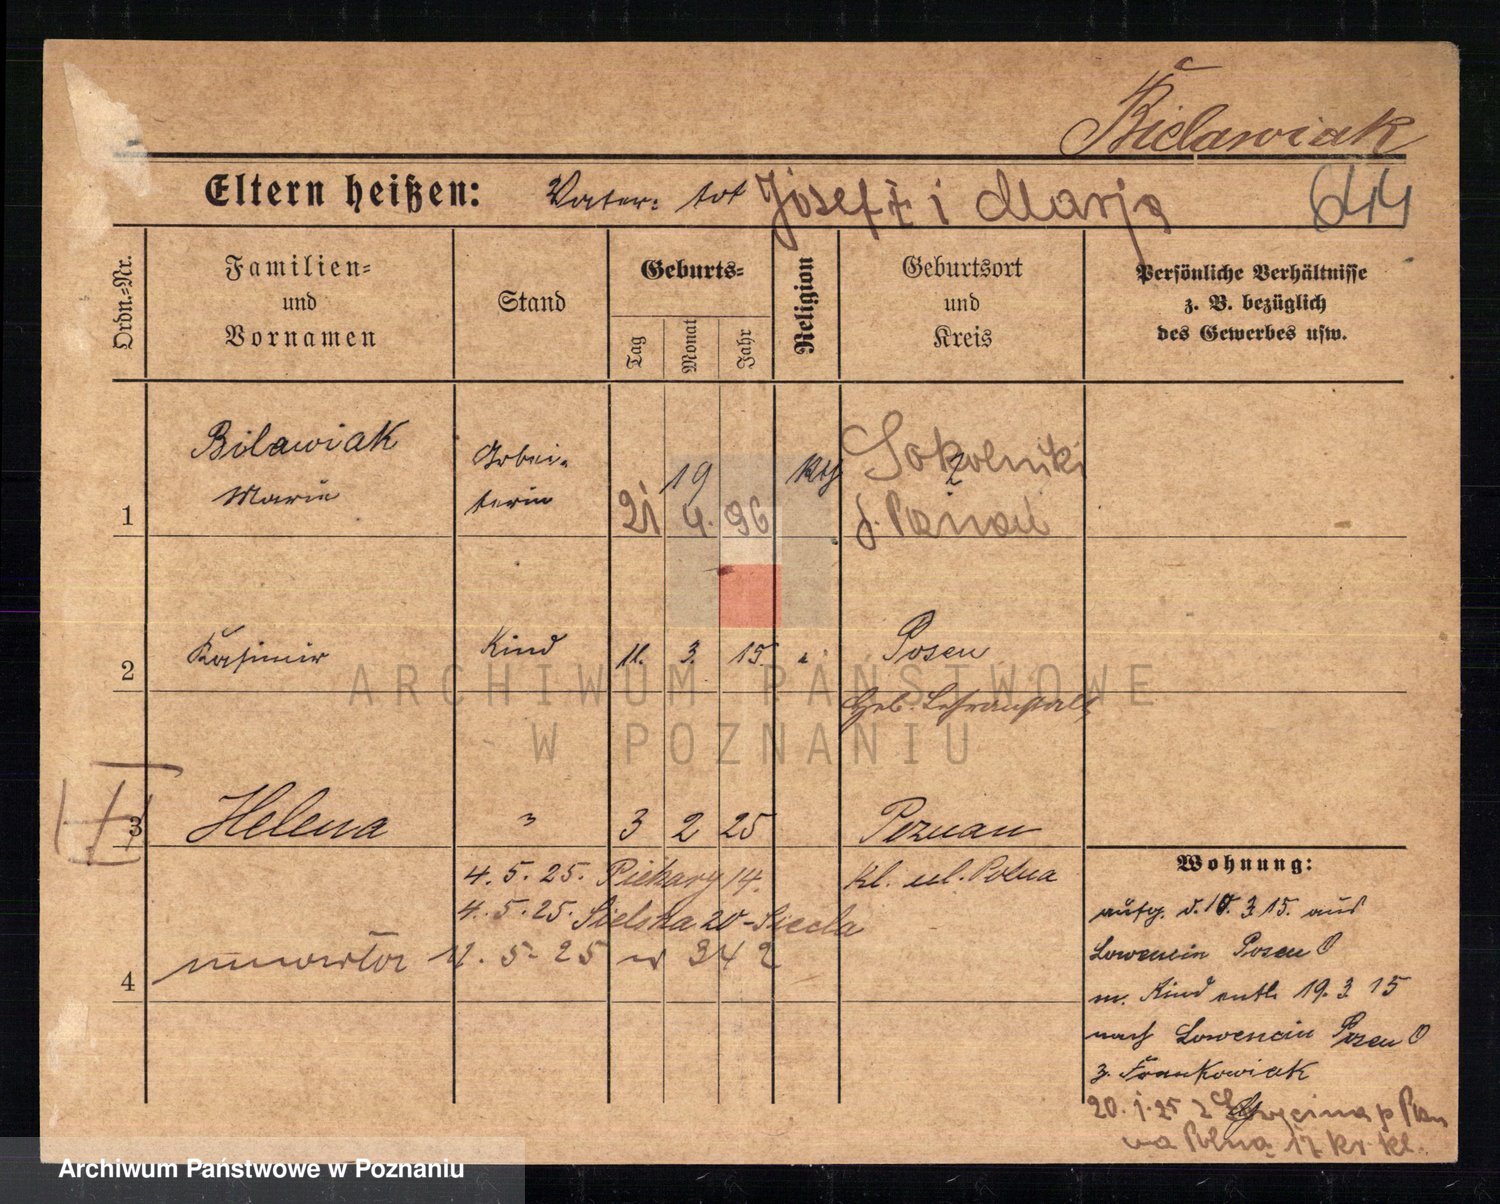 Bielawiak
Eltern heißen: Vater: tot Josef ż i Marja
Ordn.=Nr.
Familien=
und
Vornamen
Stand
Geburts=
Tag
Monat
Jahr
Religion
Geburtsort
und
Kreis
Persönliche Verhältnisse
z. B. bezüglich
des Gewerbes usw.
Bilawiak
Marie
Arbei-
terin
19
21 4. 96
kth
Sokolniki
1
2
Kasimir
Kind
11. 3. 15
Posen
Geb. Lehranstalt
3
Helena
" 3 2 25
Poznan
4. 5. 25. Piekary 14.
kl. ul. Polna
4. 5. 25. Sielska 20
11. 5. 25 w 342
4
Wohnung:
aufg. d. 10. 3. 15. aus
Lowencin Posen O
m. Kind entl. 19. 3. 15
nach Lowencin Posen O
z. Frankowiak
20. 1. 25 z
na Polną 17 kr. kl.
ARCHIWUM PAŃSTWOWE
W POZNANIU
Archiwum Państwowe w Poznaniu